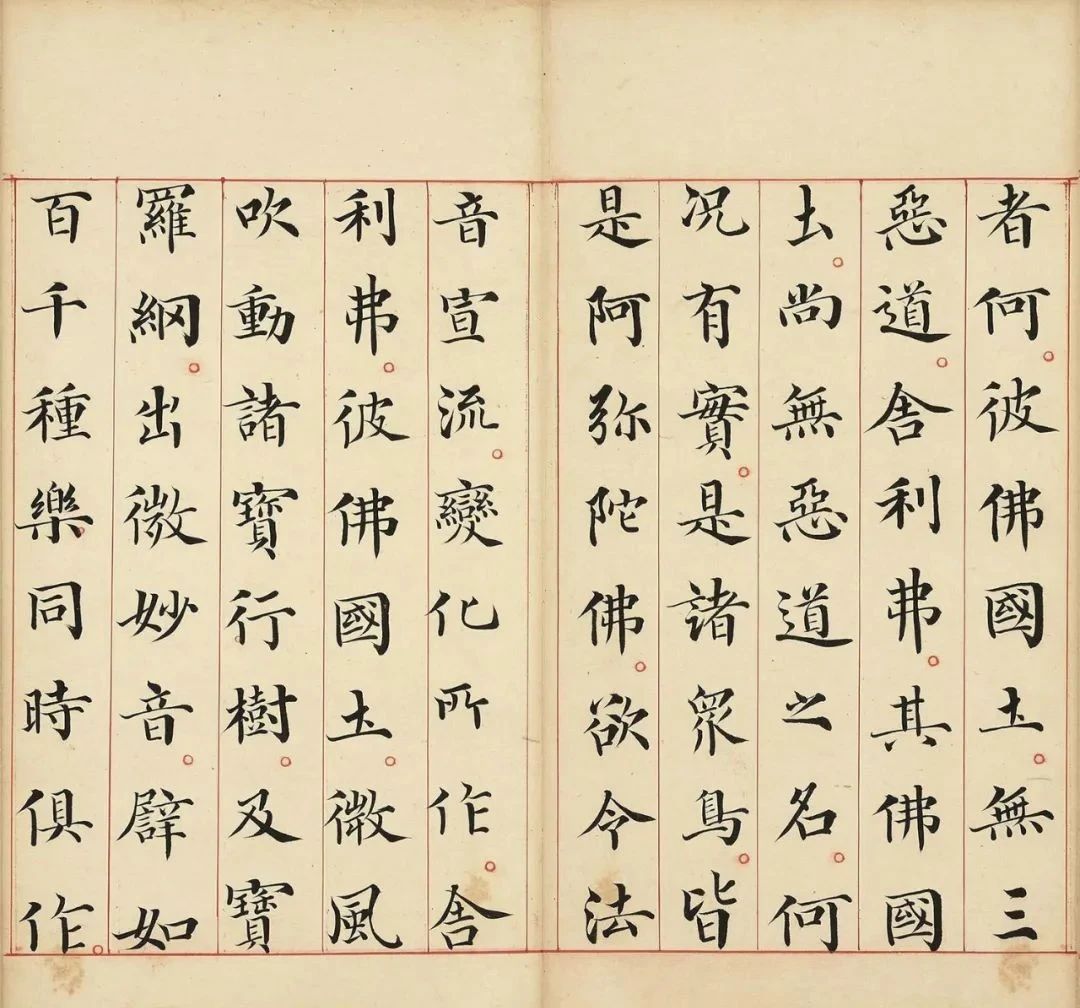 者何。彼佛國土。無三
惡道。舎利弗。其佛國
土。尚無惡道之名。何
况有實。是諸衆鳥。皆
是阿弥陀佛。欲令法
音宣流。變化所作。舎
利弗。彼佛國土。微風
吹動諸寶行樹。及寶
羅網。出微妙音。譬如
百千種樂。同時俱作。